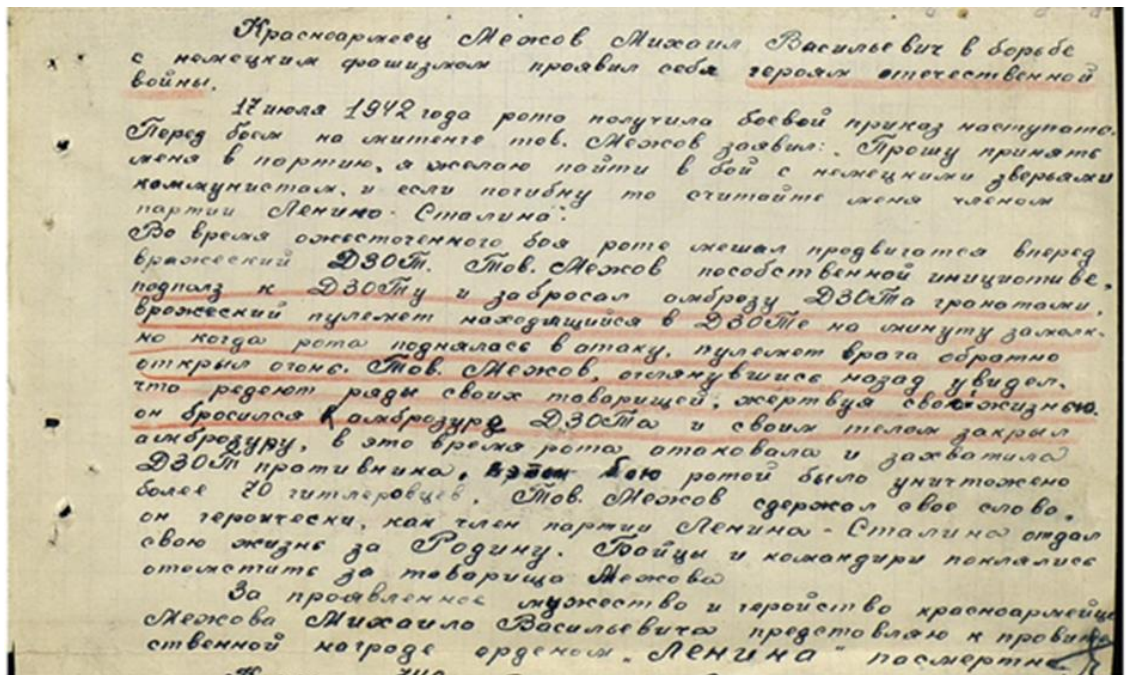 Красноармеец Межов Михаил Васильевич в борьбе
с немецким фашизмом проявил себя героям отечественной
войны.
17 июля 1942 года рота получила боевой приказ наступать.
Перед боем на митенге тов. Межов заявил: „Прошу принять
меня в партию, я желаю пойти в бой с немецкими зверьями
коммунистам, и если погибну то считайте меня членом
партии Ленина-Сталина".
Во время ожесточенного боя роте мешал продвигатся вперед
вражеский ДЗОТ. Тов. Межов пособственной инициотиве,
подполз к ДЗОТу и забросал амброзу ДЗОТа гранатами,
врожеский пулемет находящийся в ДЗОТе на минуту замолк.
но когда рота поднялась в атаку, пулемет врага обратно
открыл огонь. Тов. Межов, оглянувшись назад увидел,
что редеют ряды своих товарищей, жертвуя своей жизнью.
он бросился к амброзуре ДЗОТа и своим телом закрыл
амброзуру, в это время рота атаковала и захватила
ДЗОТ противника, в этом бою ротой было уничтожено
более 70 гитлеровцев. Тов. Межов сдержал свое слово,
он героически, как член партии Ленина-Сталина отдал
свою жизнь за Родину. Бойцы и командири поклялись
отомстить за товарища Межова
За проявленное мужество и геройство красноармейца
Межова Михаила Васильевича представляю к правите
ственной награде орденом „Ленина" посмертно